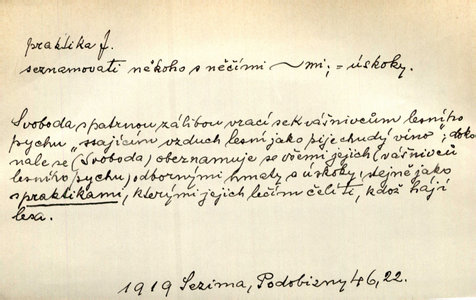 praktika f.
seznamovati někoho s něčími ~mi; = úskoky.
Svoboda s patrnou zálibou vrací se k vášnivcům lesního
pychu „ssajícím vzduch lesní jako pije chudý víno"; doko
nale se (Svoboda) obeznamuje se všemi jejich (vášnivců
lesního pychu) odbornými hmaty a úskoky, stejně jako
s praktikami, kterými jejich lečím čelí ti, kdož hájí
lesa.
1919 Sezima, Podobizny 46, 22.